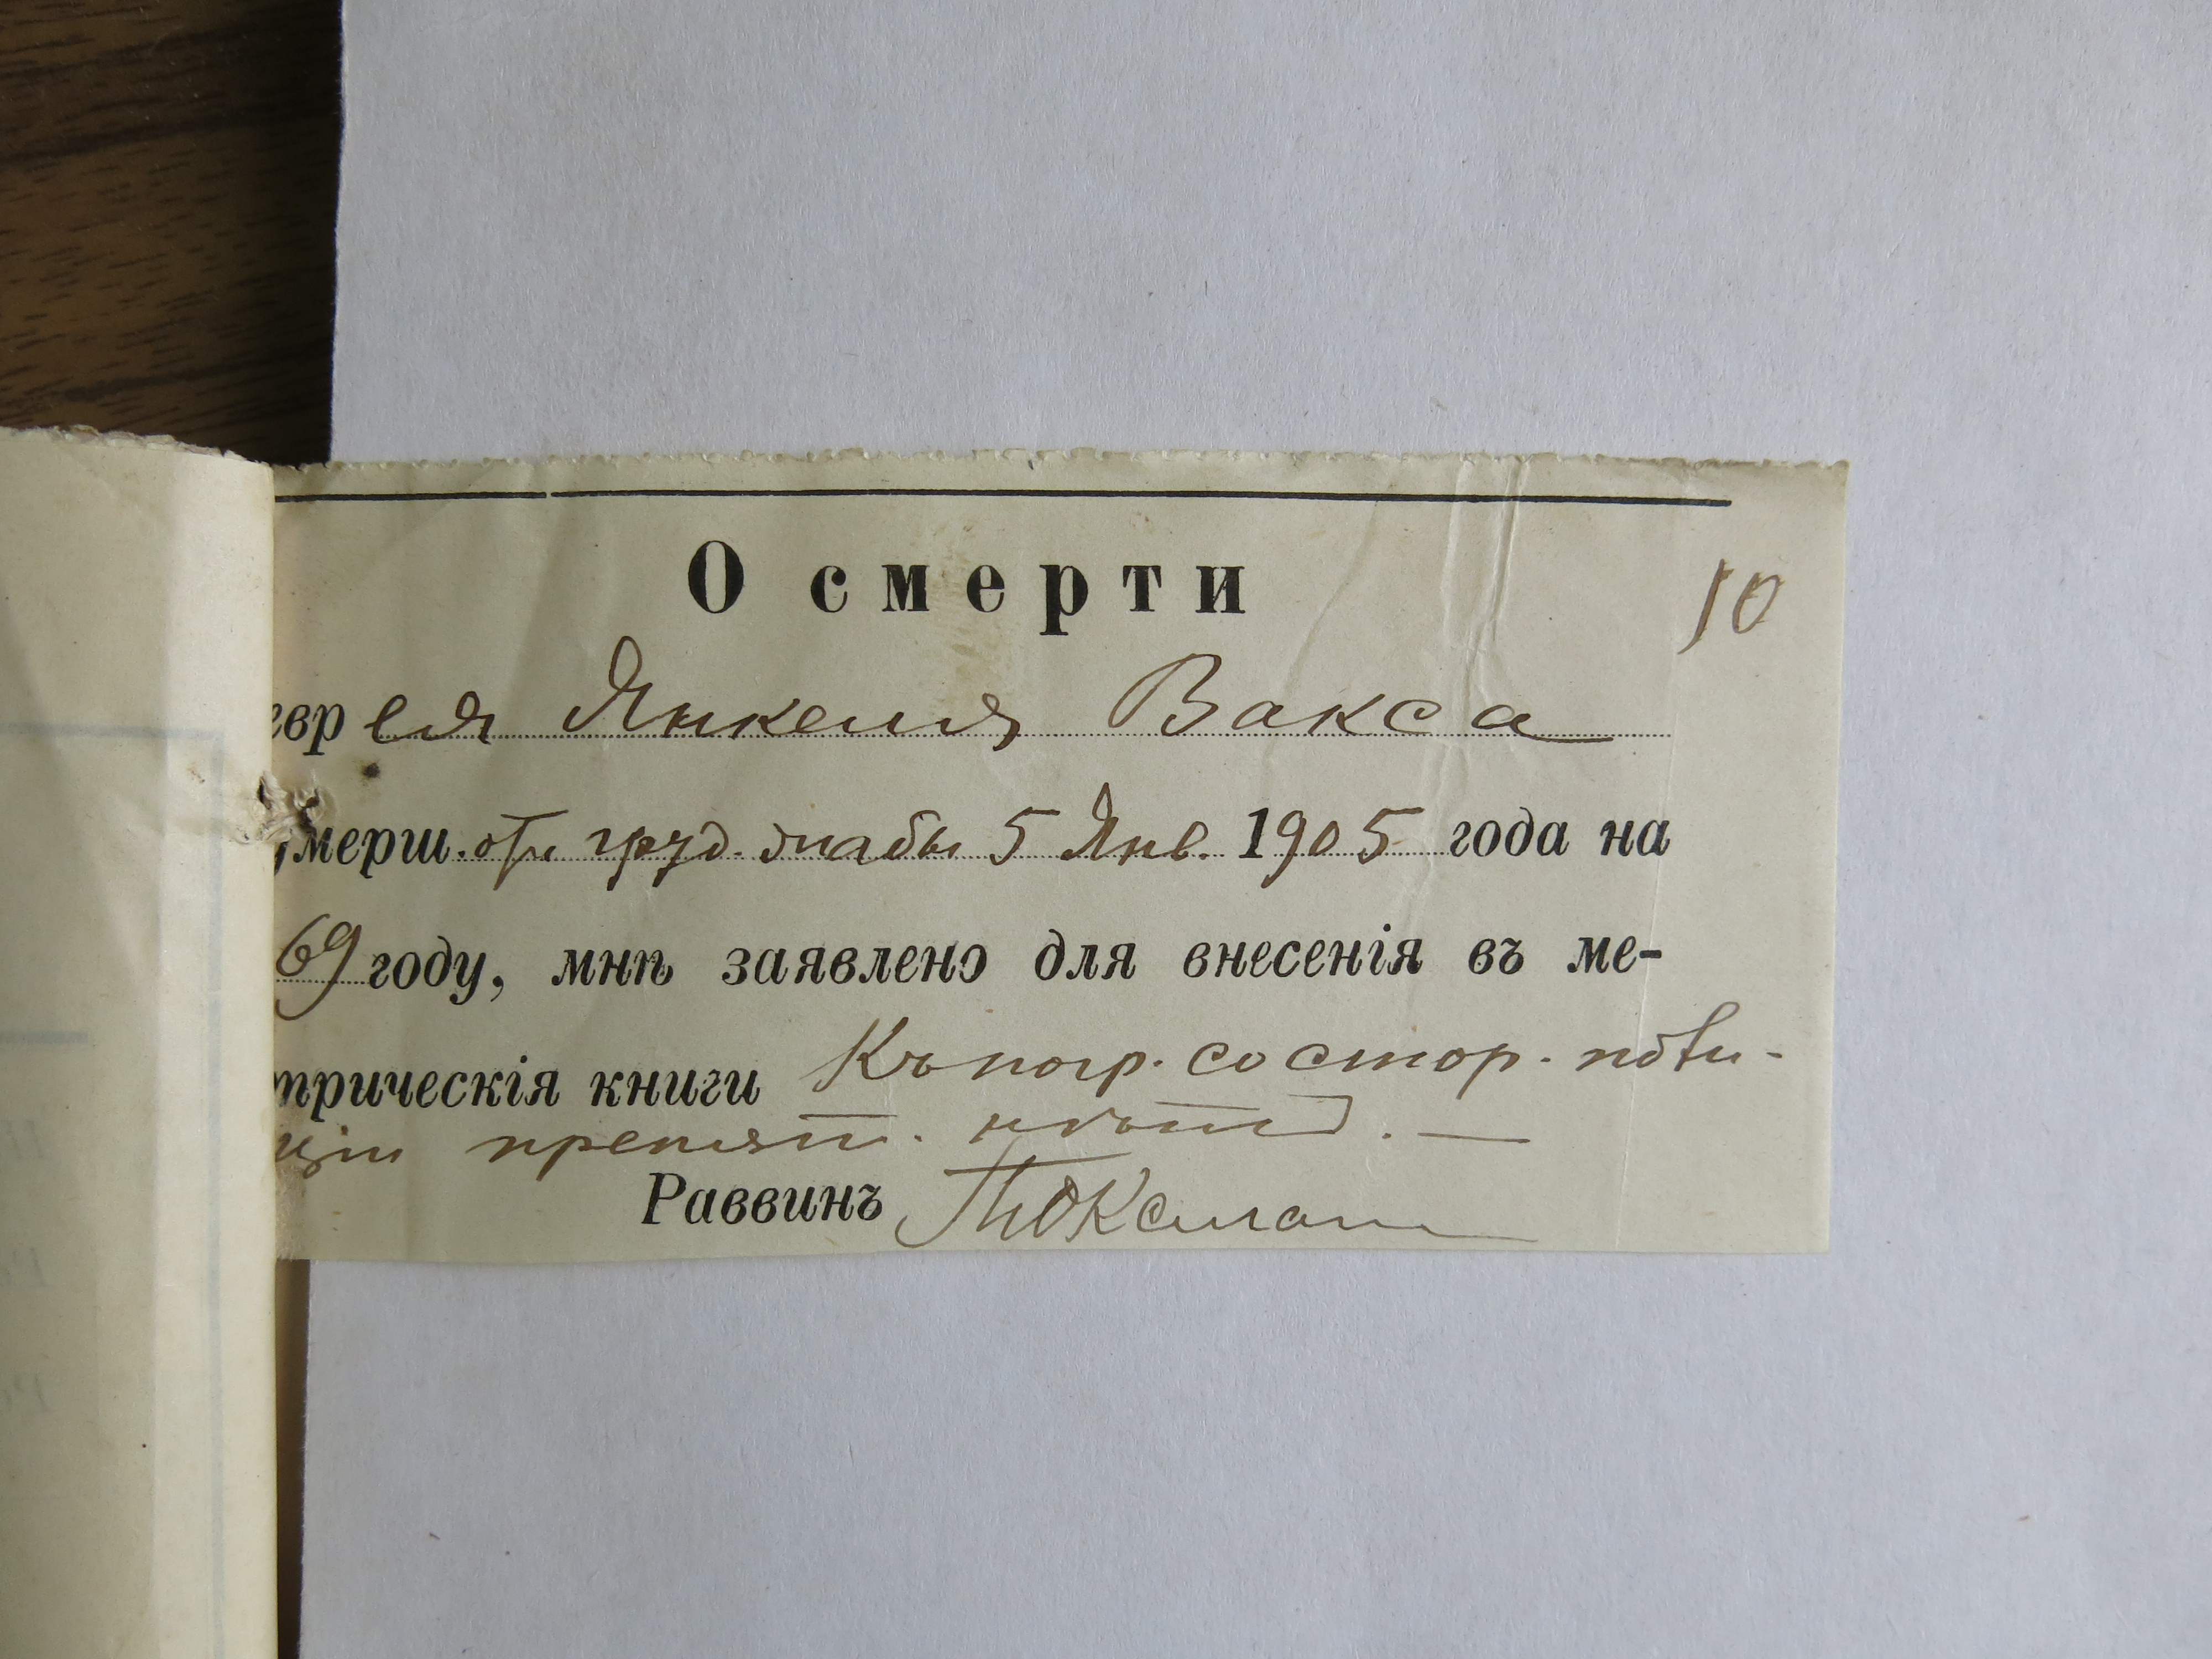 О смерти
10
евр ея Янкеля Вакса
умерш. отъ груд. жабы 5 Янв. 1905 года на
69 году, мнѣ заявлено для внесенія въ ме-
трическія книги Къ погр. со стор. полѝ-
ціи препят. нѣтъ. —
Раввинъ